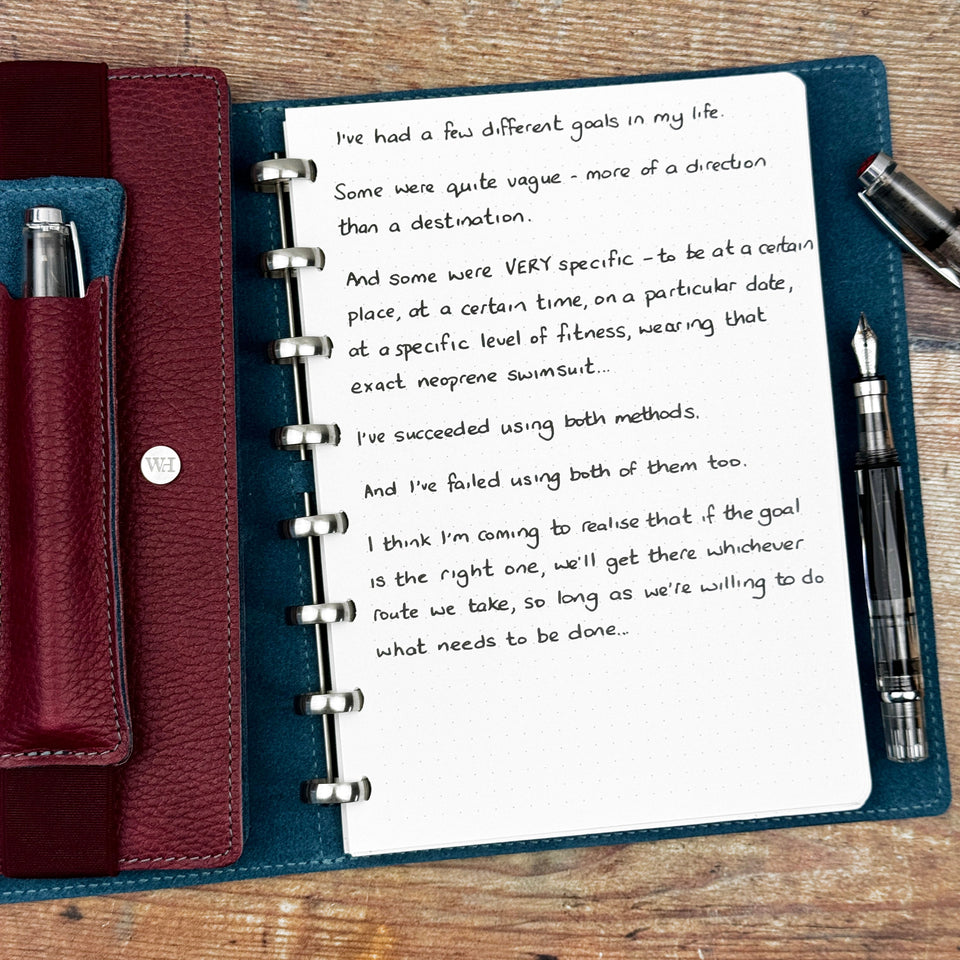 I've had a few different goals in my life.
Some were quite vague - more of a direction
than a destination.
And some were VERY specific - to be at a certain
place, at a certain time, on a particular date,
at a specific level of fitness, wearing that
exact neoprene swimsuit...
I've succeeded using both methods.
And I've failed using both of them too.
I think I'm coming to realise that if the goal
is the right one, we'll get there whichever
route we take, so long as we're willing to do
what needs to be done...
WH